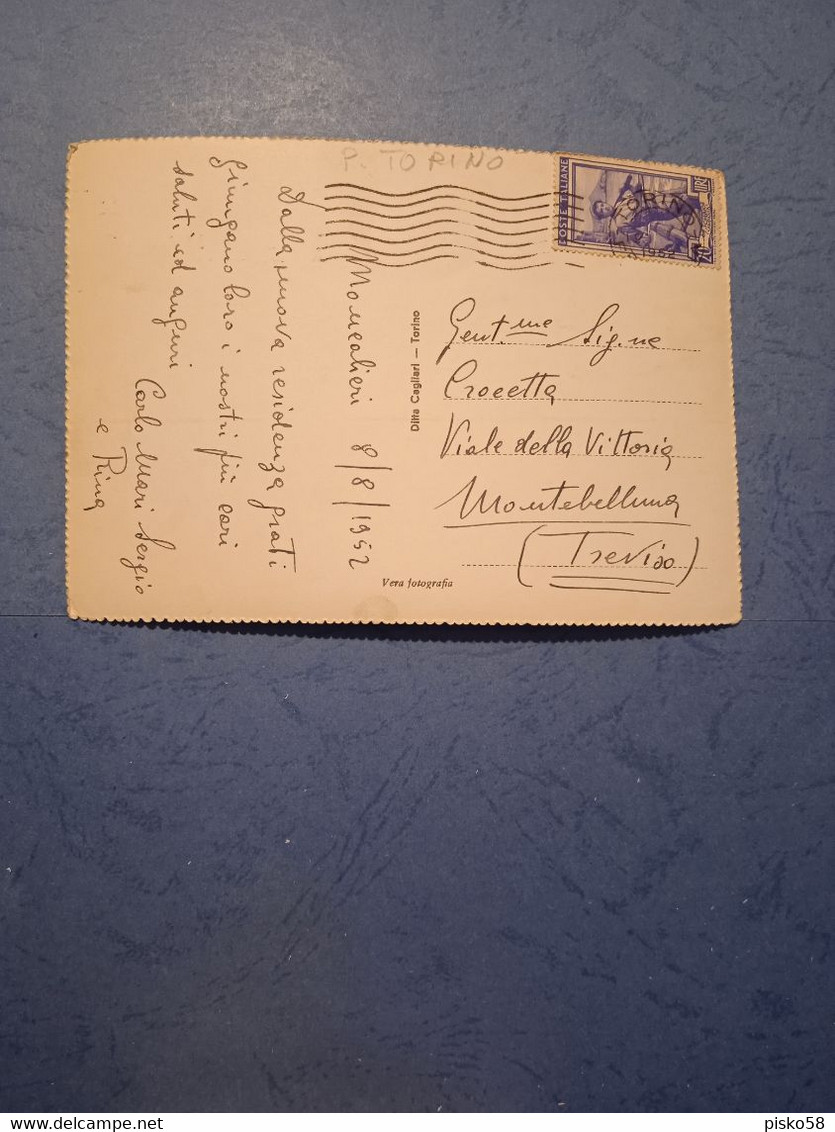 P. TORINO
Moncalieri 8/8/1952
Dalla nuova residenza grati
giungano loro i nostri più cari
saluti ed auguri
Carlo Mari Sergio
e Rina
Ditta Cagliari — Torino
Vera fotografia
POSTE ITALIANE
20
TORINO
1952
Gent.me Sig.ne
Crocetta
Viale della Vittoria
Montebelluna
(Treviso)
delcampe.net
pisko58